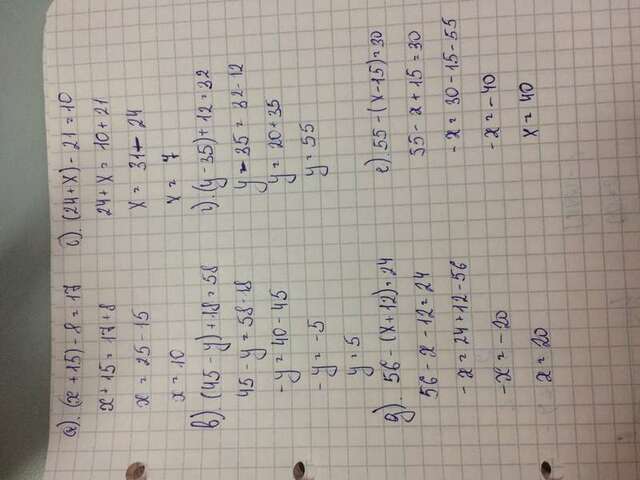 а). (x+15)-8=17
x+15=17+8
x=25-15
x=10
б). (24+x)-21=10
24+x=10+21
x=31-24
x=7
в). (45-y)+18=58
45-y=58-18
-y=40-45
-y=-5
y=5
г). (y-35)+12=32
y-35=32-12
y=20+35
y=55
д). 56-(x+12)=24
56-x-12=24
-x=24+12-56
-x=-20
x=20
е). 55-(x-15)=30
55-x+15=30
-x=30-15-55
-x=-40
x=40